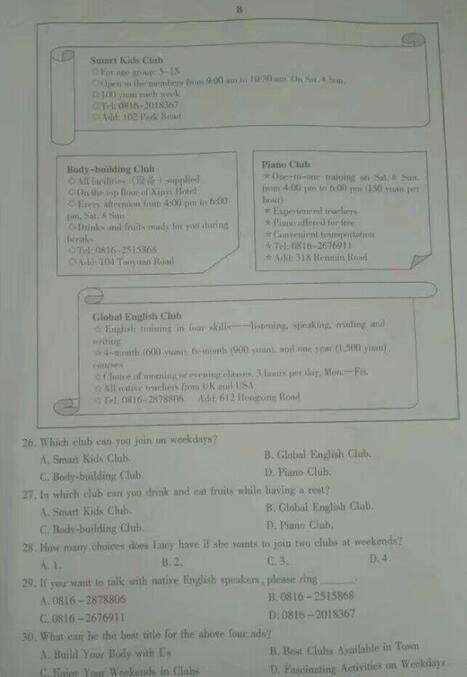 B
Smart Kids Club
○For age group: 5-15
○Open to the members from 9:00 am to 10:30 am. On Sat. & Sun.
○100 yuan each week
○Tel: 0816-2018367
○Add: 102 Park Road
Body-building Club
◇All facilities (设备) supplied
◇On the top floor of Xinyi Hotel
◇Every afternoon from 4:00 pm to 6:00
pm, Sat. & Sun
◇Drinks and fruits ready for you during
breaks
◇Tel: 0816-2515868
◇Add: 104 Taoyuan Road
Piano Club
☆One-to-one training on Sat. & Sun.
from 4:00 pm to 6:00 pm (150 yuan per
hour)
☆Experienced teachers
☆Piano offered for free
☆Convenient transportation
☆Tel: 0816-2676911
☆Add: 318 Renmin Road
Global English Club
☆English training in four skills——listening, speaking, reading and
writing
☆4-month (600 yuan), 6-month (900 yuan), and one year (1,500 yuan)
courses
☆Choice of morning or evening classes, 3 hours per day, Mon.—Fri.
☆All native teachers from UK and USA
☆Tel: 0816-2878806 Add: 612 Hongxing Road
26. Which club can you join on weekdays?
A. Smart Kids Club. B. Global English Club.
C. Body-building Club. D. Piano Club.
27. In which club can you drink and eat fruits while having a rest?
A. Smart Kids Club. B. Global English Club.
C. Body-building Club. D. Piano Club.
28. How many choices does Lucy have if she wants to join two clubs at weekends?
A. 1. B. 2. C. 3. D. 4.
29. If you want to talk with native English speakers, please ring ______.
A. 0816-2878806 B. 0816-2515868
C. 0816-2676911 D. 0816-2018367
30. What can be the best title for the above four ads?
A. Build Your Body with Us B. Best Clubs Available in Town
C. Enjoy Your Weekends in Clubs D. Fascinating Activities on Weekdays